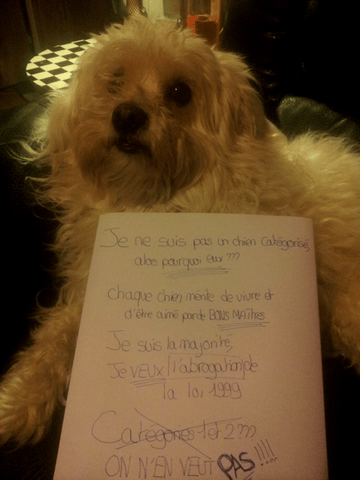 Je ne suis pas un chien Catégorisé,
alos pourquoi eux ???
Chaque chien mérite de vivre et
d'être aimé par de BONS MAîTRES
Je suis la majorité,
Je VEUX l'abrogation de
la loi 1999
Catégories 1 et 2 ???
ON N'EN VEUT PAS !!!!...